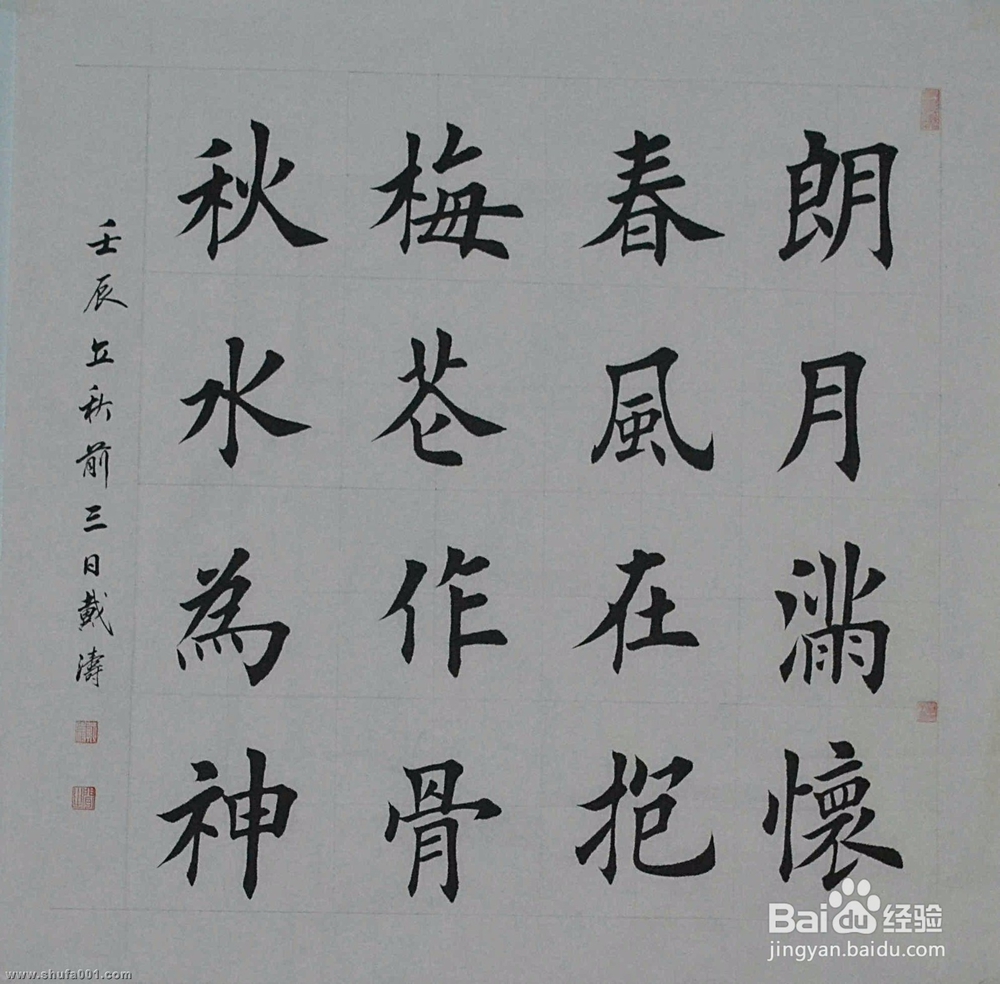 朗月滿懷
春風在抱
梅花作骨
秋水為神
壬辰立秋前三日戴濤
Bai du 经验
jingyan.baidu.com
www.shufa001.com